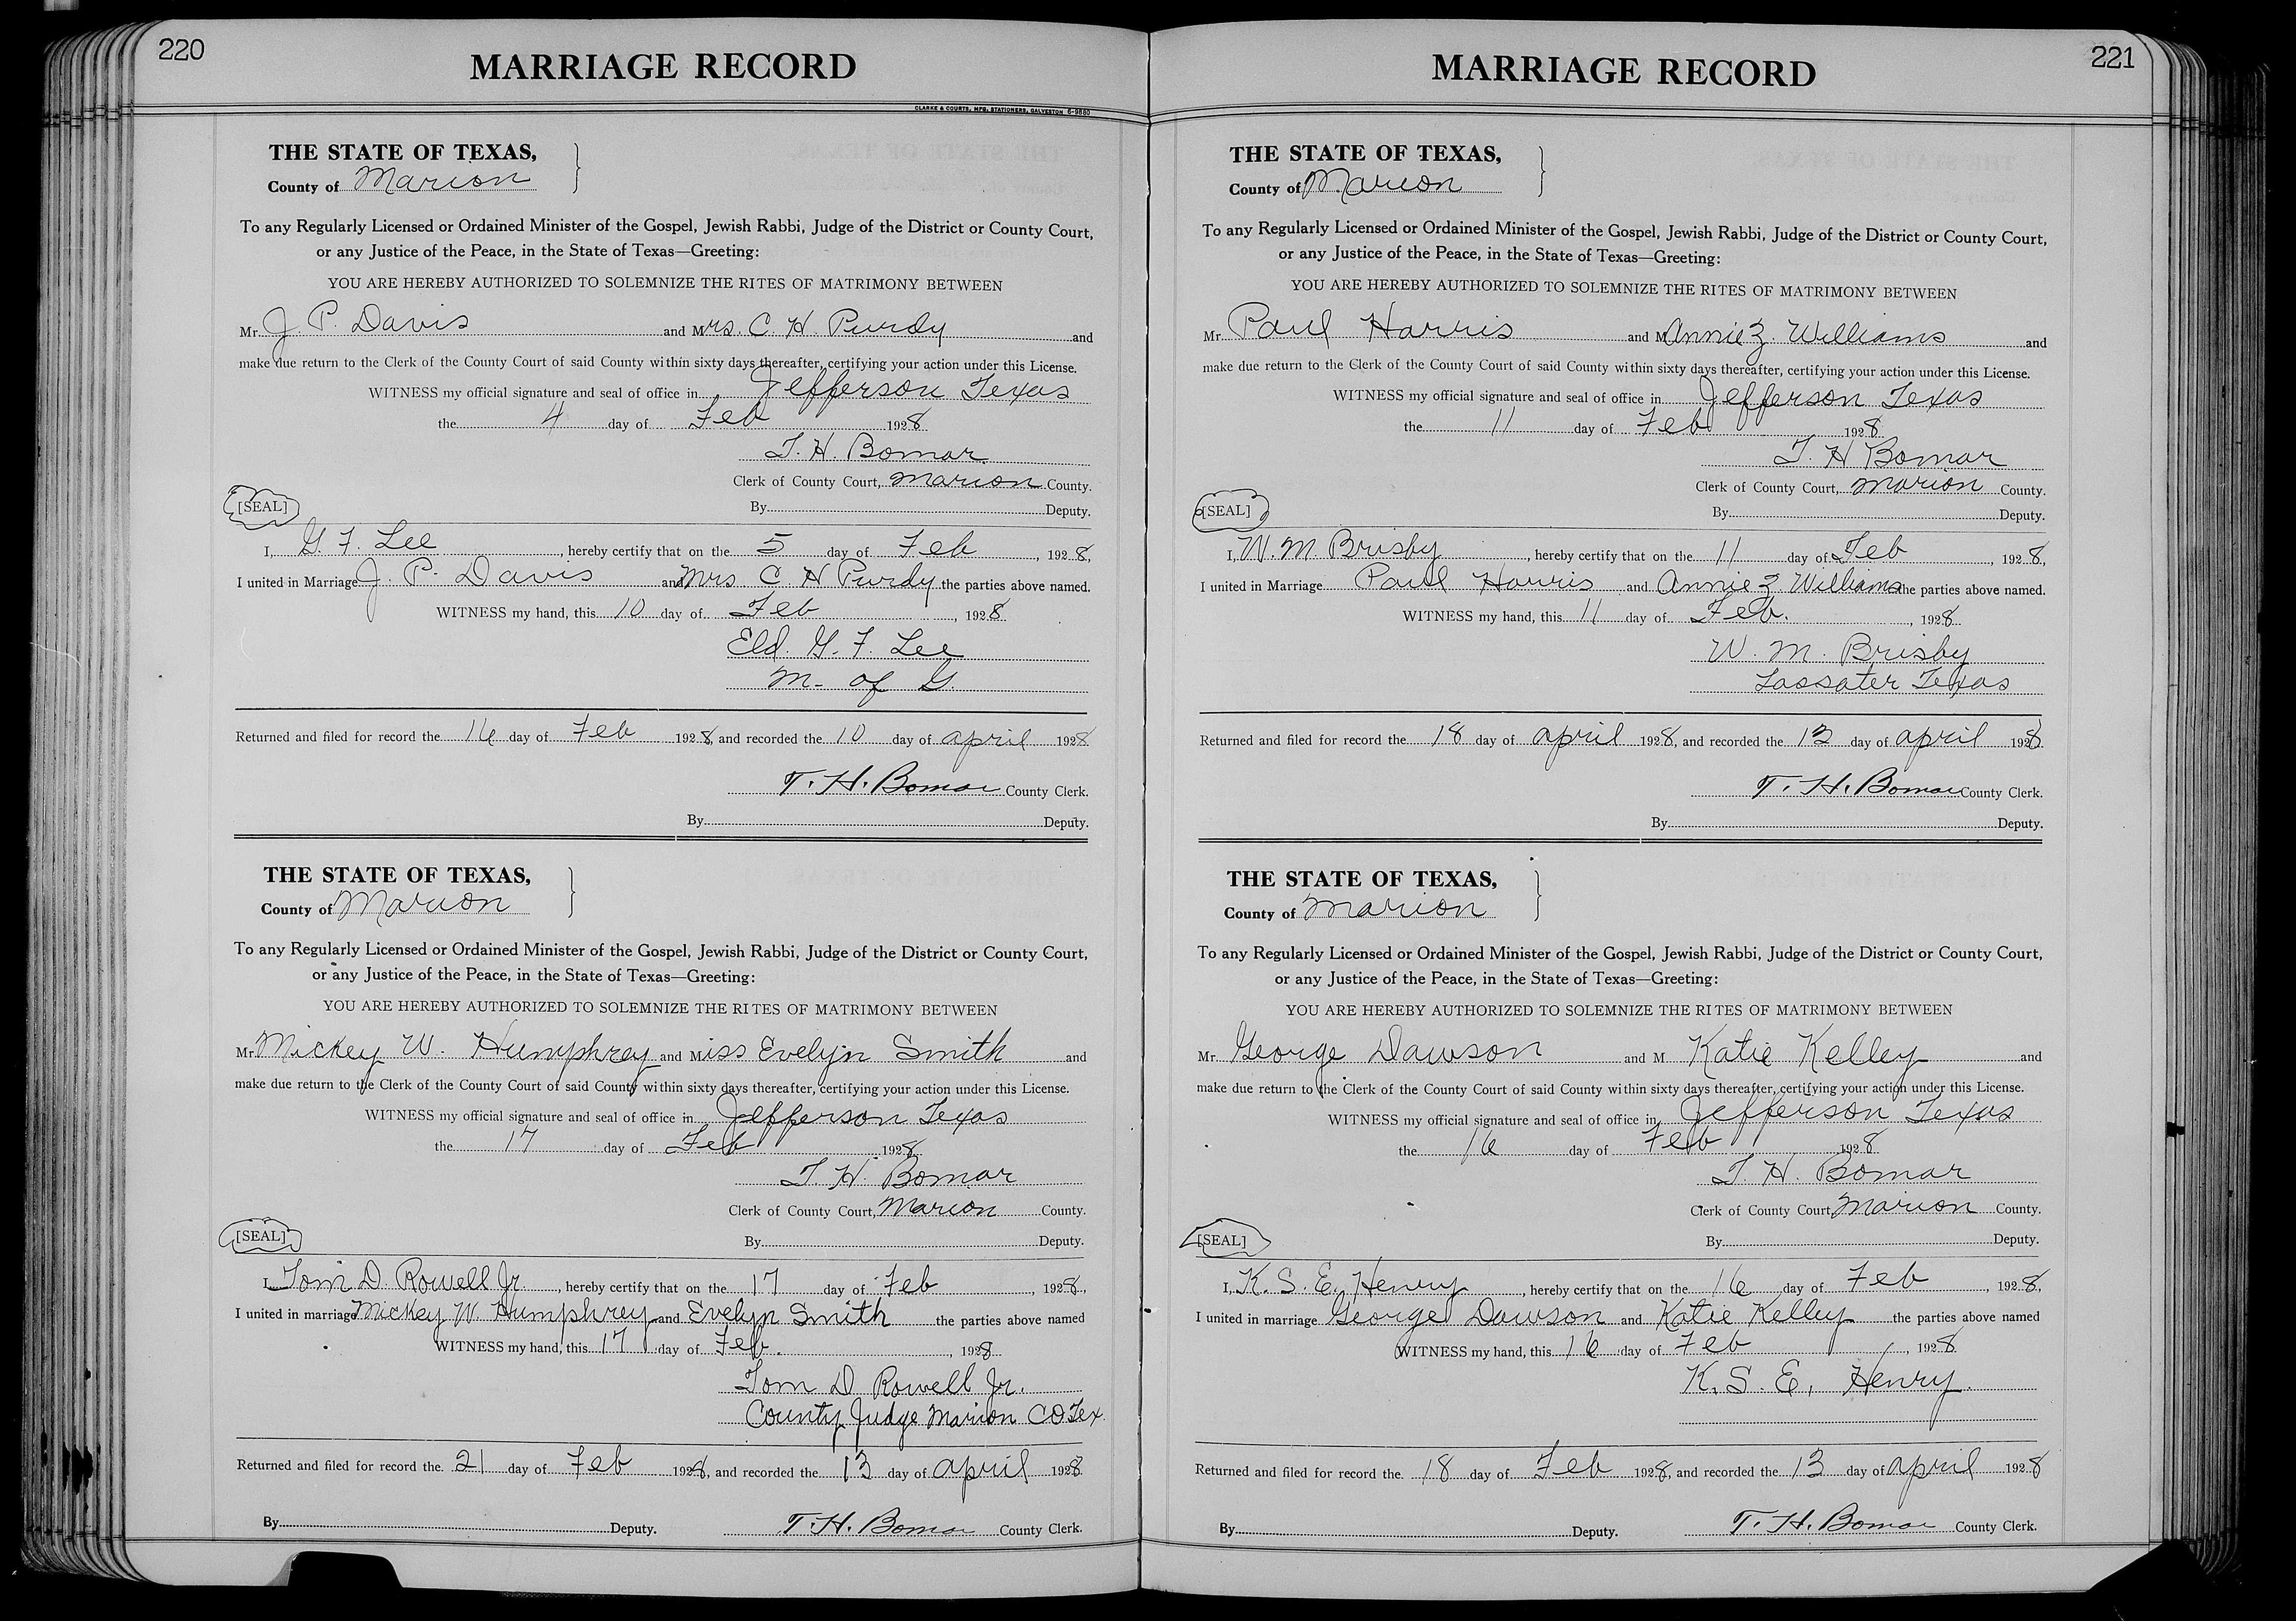 220
MARRIAGE RECORD
CLARKE & COURTS, MFG. STATIONERS, GALVESTON 6-9880
THE STATE OF TEXAS,
County of Marion
To any Regularly Licensed or Ordained Minister of the Gospel, Jewish Rabbi, Judge of the District or County Court,
or any Justice of the Peace, in the State of Texas—Greeting:
YOU ARE HEREBY AUTHORIZED TO SOLEMNIZE THE RITES OF MATRIMONY BETWEEN
Mr. J. P. Davis and Mrs. C. H. Purdy and
make due return to the Clerk of the County Court of said County within sixty days thereafter, certifying your action under this License.
WITNESS my official signature and seal of office in Jefferson Texas
the 4 day of Feb 1928
T. H. Bomar
Clerk of County Court, Marion County.
[SEAL]
By Deputy.
I, G. F. Lee, hereby certify that on the 5 day of Feb, 1928,
I united in Marriage J. P. Davis and Mrs C H Purdy the parties above named.
WITNESS my hand, this 10 day of Feb, 1928
Eld. G. F. Lee
M. of G.
Returned and filed for record the 16 day of Feb 1928, and recorded the 10 day of april 1928
T. H. Bomar County Clerk.
By Deputy.
THE STATE OF TEXAS,
County of Marion
To any Regularly Licensed or Ordained Minister of the Gospel, Jewish Rabbi, Judge of the District or County Court,
or any Justice of the Peace, in the State of Texas—Greeting:
YOU ARE HEREBY AUTHORIZED TO SOLEMNIZE THE RITES OF MATRIMONY BETWEEN
Mr. Mickey W. Humphrey and Miss Evelyn Smith and
make due return to the Clerk of the County Court of said County within sixty days thereafter, certifying your action under this License.
WITNESS my official signature and seal of office in Jefferson Texas
the 17 day of Feb 1928
T. H. Bomar
Clerk of County Court, Marion County.
[SEAL]
By Deputy.
I, Tom D. Rowell Jr., hereby certify that on the 17 day of Feb, 1928,
I united in marriage Mickey W. Humphrey and Evelyn Smith the parties above named
WITNESS my hand, this 17 day of Feb., 1928
Tom D Rowell Jr.
County Judge Marion CO Tex.
Returned and filed for record the 21 day of Feb 1928, and recorded the 13 day of april 1928
By Deputy. T. H. Bomar County Clerk.
221
MARRIAGE RECORD
THE STATE OF TEXAS,
County of Marion
To any Regularly Licensed or Ordained Minister of the Gospel, Jewish Rabbi, Judge of the District or County Court,
or any Justice of the Peace, in the State of Texas—Greeting:
YOU ARE HEREBY AUTHORIZED TO SOLEMNIZE THE RITES OF MATRIMONY BETWEEN
Mr. Paul Harris and M Annie Z. Williams and
make due return to the Clerk of the County Court of said County within sixty days thereafter, certifying your action under this License.
WITNESS my official signature and seal of office in Jefferson Texas
the 11 day of Feb 1928
T. H Bomar
Clerk of County Court, Marion County.
[SEAL]
By Deputy.
I, W. M Brisby, hereby certify that on the 11 day of Feb, 1928,
I united in Marriage Paul Harris and Annie Z Williams the parties above named.
WITNESS my hand, this 11 day of Feb., 1928
W. M. Brisby
Lassater Texas
Returned and filed for record the 18 day of april 1928, and recorded the 13 day of april 1928
T. H. Bomar County Clerk.
By Deputy.
THE STATE OF TEXAS,
County of Marion
To any Regularly Licensed or Ordained Minister of the Gospel, Jewish Rabbi, Judge of the District or County Court,
or any Justice of the Peace, in the State of Texas—Greeting:
YOU ARE HEREBY AUTHORIZED TO SOLEMNIZE THE RITES OF MATRIMONY BETWEEN
Mr. George Dawson and M. Katie Kelley and
make due return to the Clerk of the County Court of said County within sixty days thereafter, certifying your action under this License.
WITNESS my official signature and seal of office in Jefferson Texas
the 16 day of Feb 1928
T. H. Bomar
Clerk of County Court, Marion County.
[SEAL]
By Deputy.
I, K. S. E. Henry, hereby certify that on the 16 day of Feb, 1928,
I united in marriage George Dawson and Katie Kelley the parties above named
WITNESS my hand, this 16 day of Feb, 1928
K. S. E. Henry.
Returned and filed for record the 18 day of Feb 1928, and recorded the 13 day of april 1928
By Deputy. T. H. Bomar County Clerk.